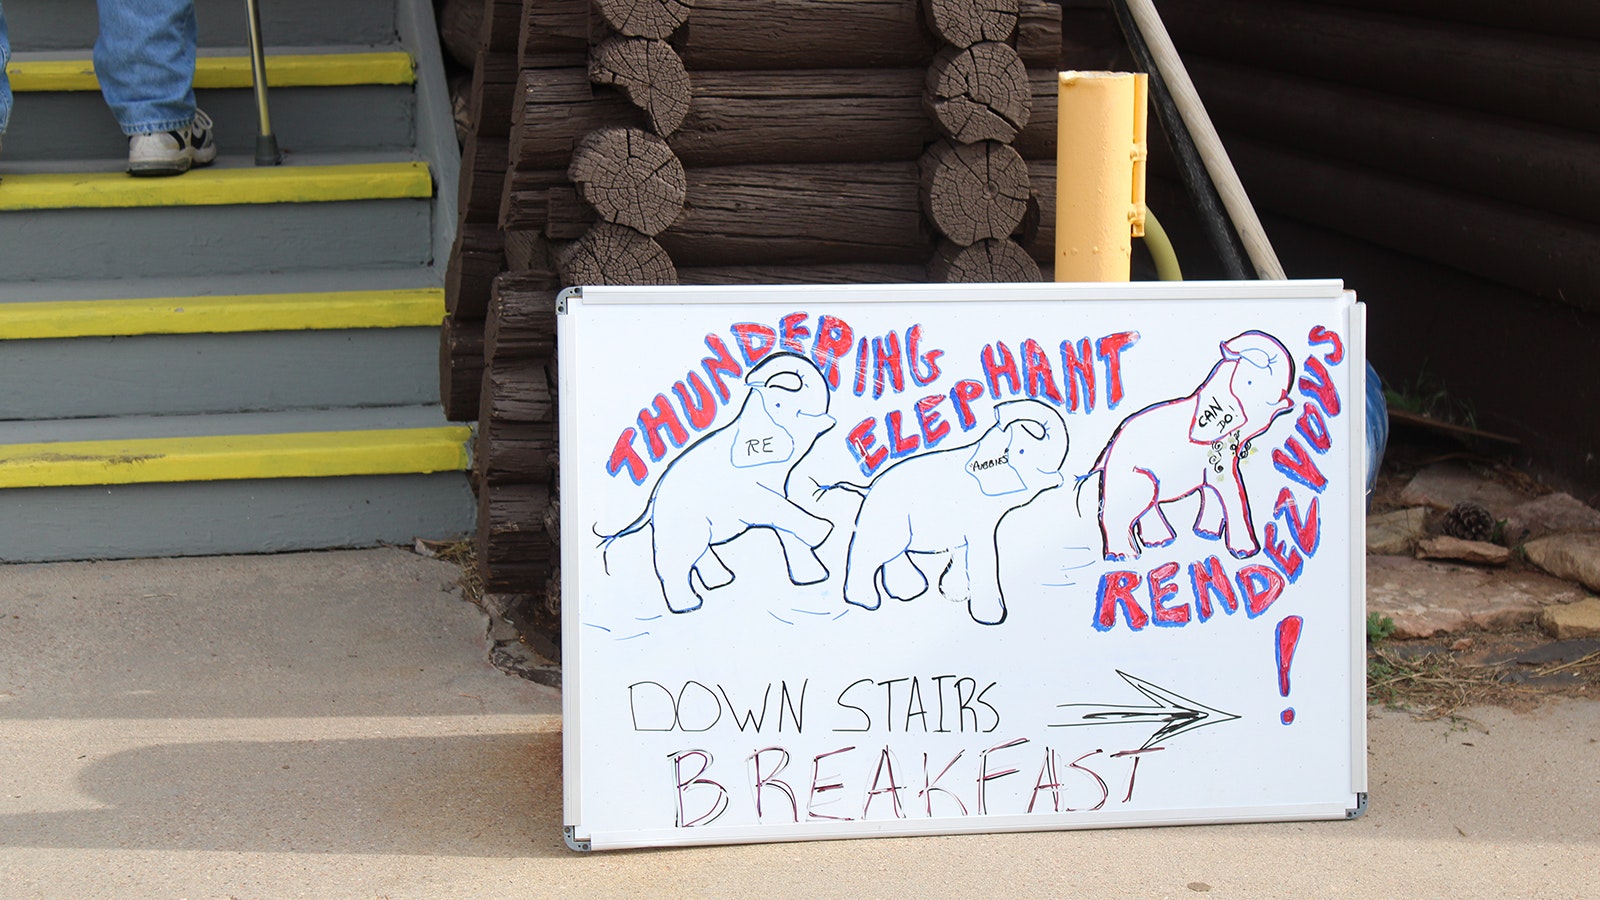 THUNDERING
ELEPHANT
RENDEZVOUS
!
RE
CAN
DO!
DOWN STAIRS
BREAKFAST